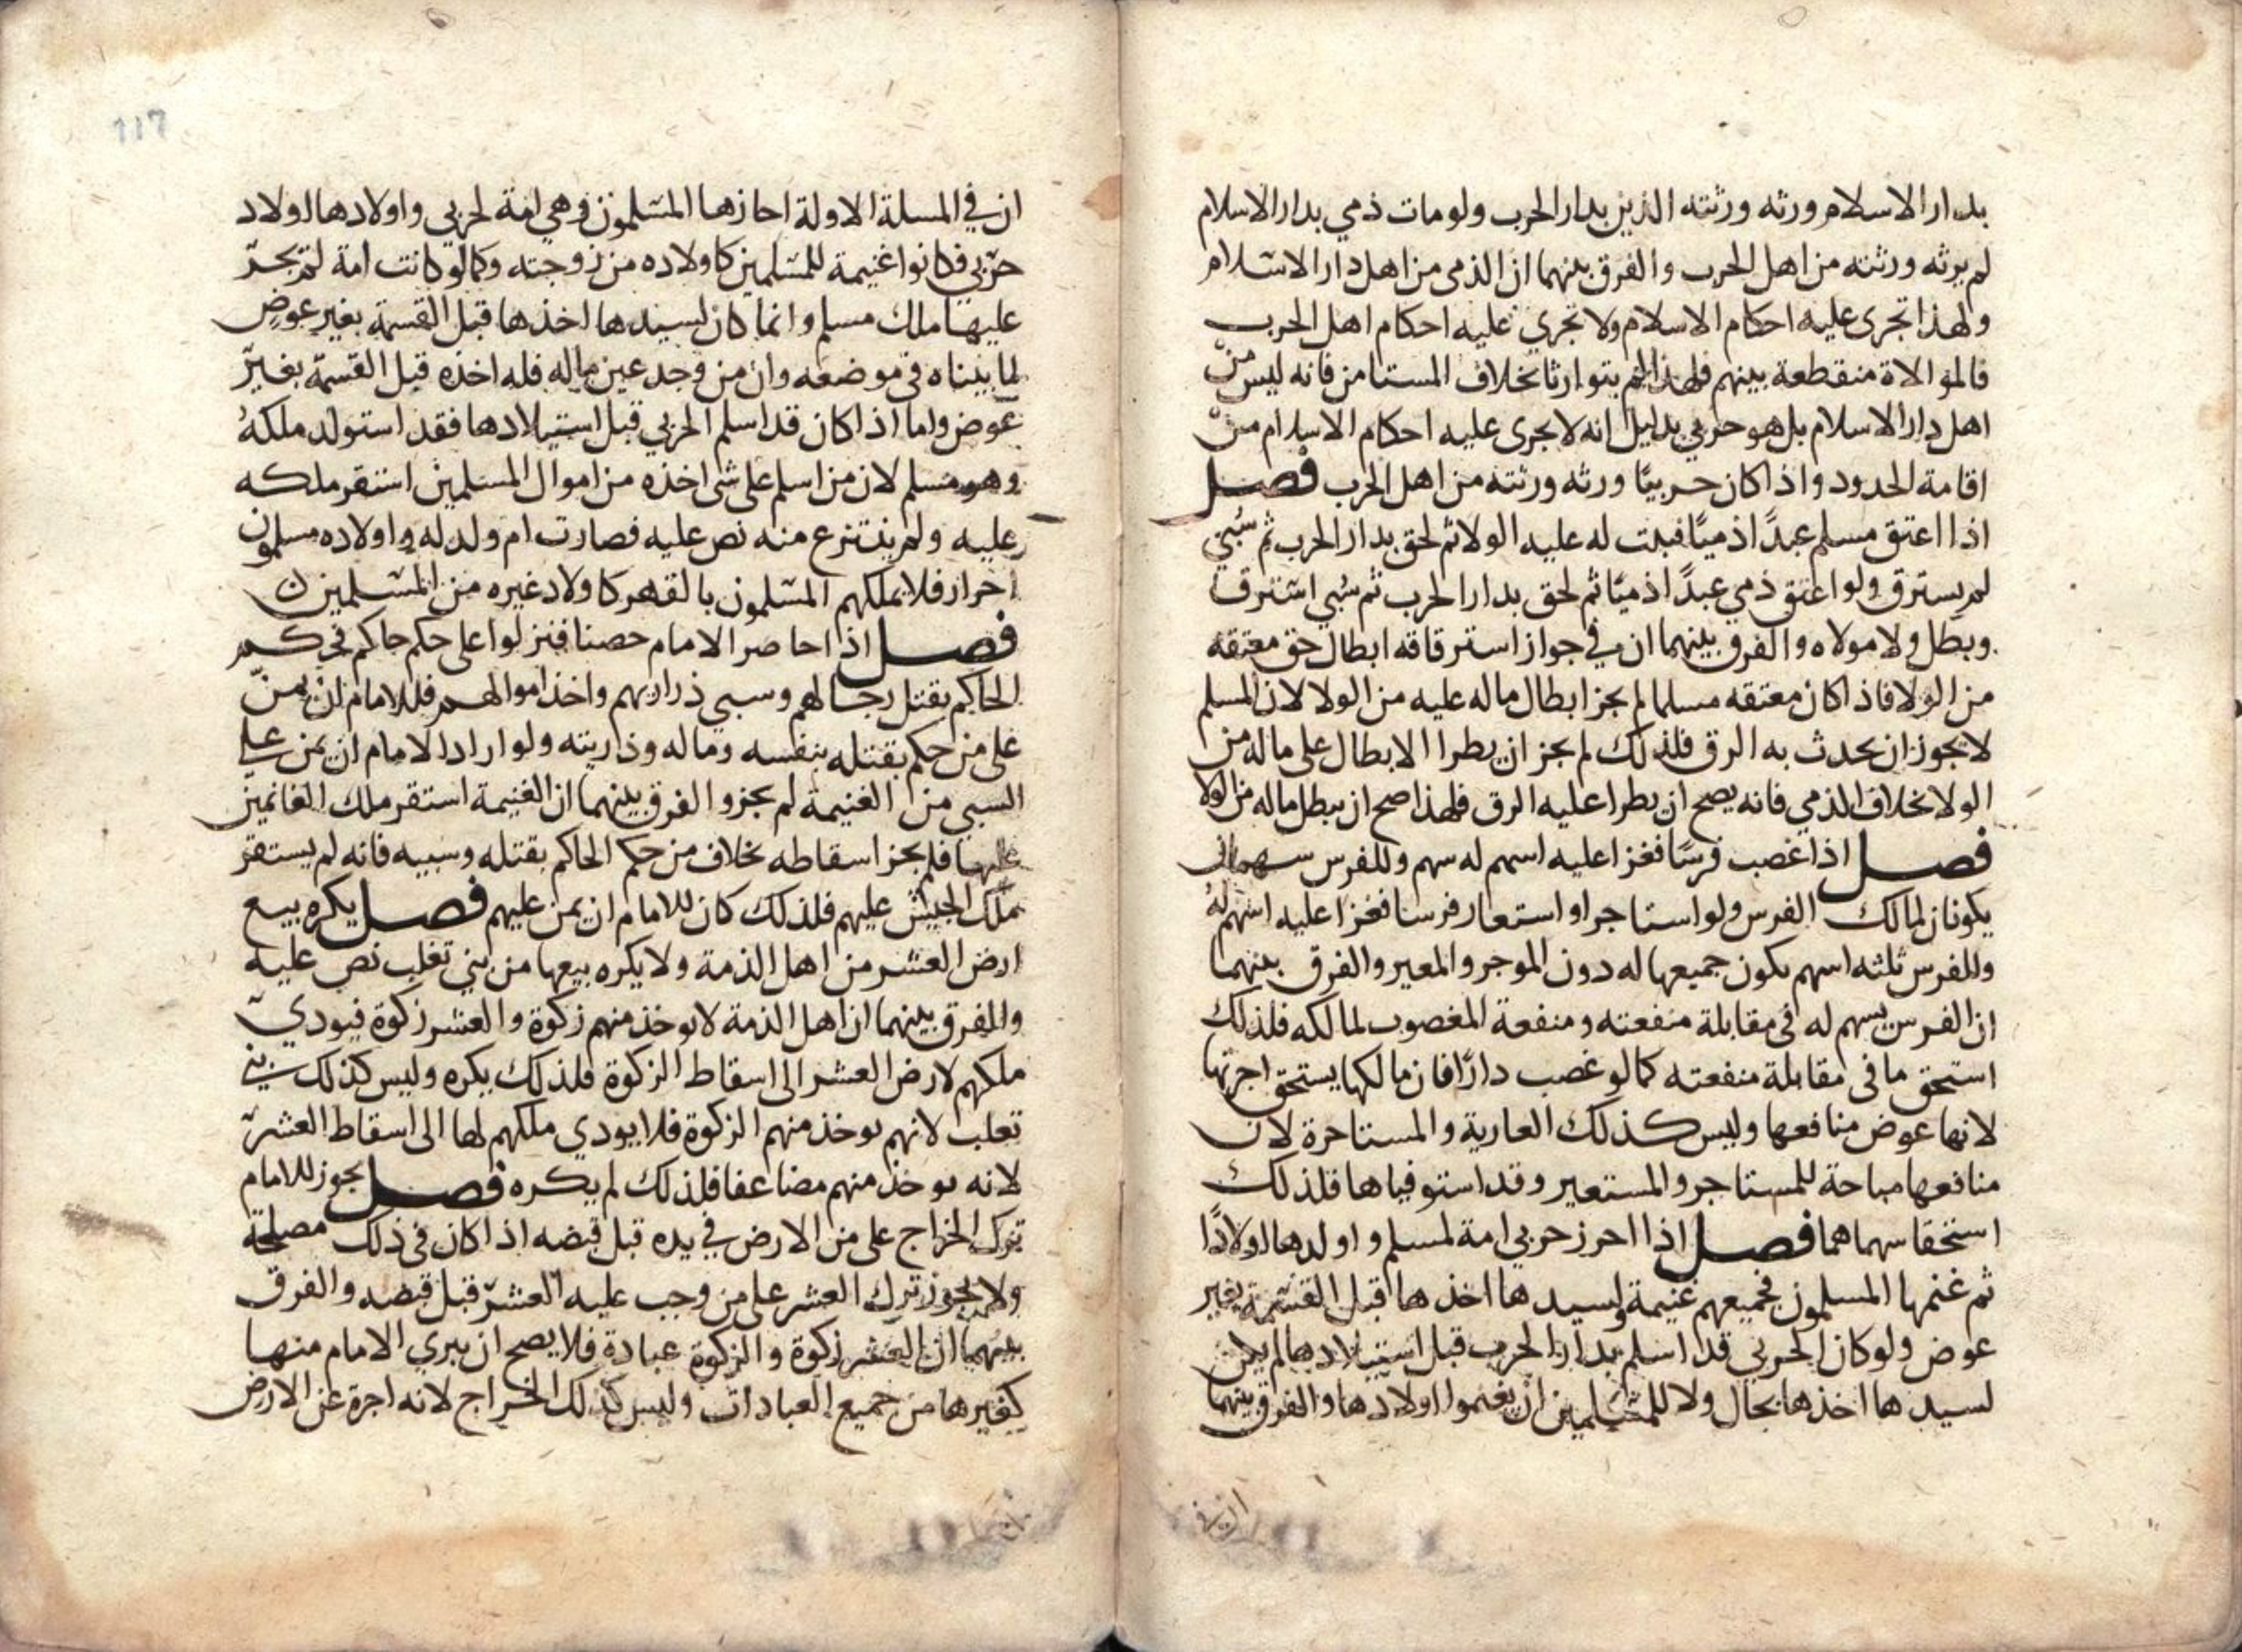 بدار الاسلام ورثه ورثته الذين بدار الحرب ولو مات ذمي بدار الاسلام
لم يرثه ورثته من اهل الحرب والفرق بينهما ان الذمى من اهل دار الاسلام
ولهذا تجرى عليه احكام الاسلام ولا تجري عليه احكام اهل الحرب
فالموالاة منقطعة بينهم فلهذا لم يتوارثا بخلاف المستامن فانه ليس من
اهل دار الاسلام بل هو حربي بدليل انه لا يجرى عليه احكام الاسلام من
اقامة الحدود واذا كان حربيًا ورثه ورثته من اهل الحرب فصل
اذا اعتق مسلم عبدًا ذميًا فثبت له عليه الولا ثم لحق بدار الحرب ثم سُبي
لم يسترق ولو اعتق ذمي عبدًا ذميًا ثم لحق بدار الحرب ثم سُبي استرق
وبطل ولا مولاه والفرق بينهما ان في جواز استرقاقه ابطال حق معتقه
من الولا فاذا كان معتقه مسلما لم يجز ابطال ماله عليه من الولا لان المسلم
لا يجوز ان يحدث به الرق فلذلك لم يجز ان يطرا الابطال على ماله من
الولا بخلاف الذمي فانه يصح ان يطرا عليه الرق فلهذا صح ان يبطل ماله من الولا
فصل اذا غصب فرسًا فغزا عليه اسهم له سهم وللفرس سهمان
يكونان لمالك الفرس ولو استاجر او استعار فرسا فغزا عليه اسهم له
وللفرس ثلثه اسهم يكون جميعها له دون الموجر والمعير والفرق بينهما
ان الفرس يسهم له فى مقابلة منفعته ومنفعة المغصوب لمالكه فلذلك
استحق ما فى مقابلة منفعته كما لو غصب دارًا فان مالكها يستحق اجرتها
لانها عوض منافعها وليس كذلك العارية والمستاجرة لان
منافعها مباحة للمستاجر والمستعير وقد استوفياها فلذلك
استحقا سهماهما فصل اذا احرز حربي امة لمسلم واولدها اولادًا
ثم غنمها المسلمون فجميعهم غنيمة ولسيدها اخذها قبل القسمة بغير
عوض ولو كان الحربي قد اسلم بدار الحرب قبل استيلادها لم يكن
لسيدها اخذها بحال ولا للمسلمين ان يغنموا اولادها والفرق بينهما
ان في
ان في المسلة الاولة احازها المسلمون وهي امة لحربي واولادها اولاد
حربي فكانوا غنيمة للمسلمين كاولاده من زوجته وكما لو كانت امة لم يجر
عليها ملك مسلم وانما كان لسيدها اخذها قبل القسمة بغير عوض
لما بيناه فى موضعه وان من وجد عين ماله فله اخذه قبل القسمة بغير
عوض واما اذا كان قد اسلم الحربي قبل استيلادها فقد استولد ملكهُ
وهو مسلم لان من اسلم على شى اخذه من اموال المسلمين استقر ملكه
عليه ولم ينتزع منه نص عليه فصارت ام ولد له واولاده مسلمون
احرار فلا يملكهم المسلمون بالقهر كاولاد غيره من المسلمين
فصل اذا حاصر الامام حصنا فنزلوا على حكم حاكم فحكم
الحاكم بقتل رجالهم وسبي ذراريهم واخذ اموالهم فللامام ان يمن
على من حكم بقتله بنفسه وماله وذريته ولو اراد الامام ان يمن علي
السبي من الغنيمة لم يجز والفرق بينهما ان الغنيمة استقر ملك الغانمين
عليها فلم يجز اسقاطه بخلاف من حكم الحاكم بقتله وسبيه فانه لم يستقر
ملك الجيش عليهم فلذلك كان للامام ان يمن عليهم فصل يكره بيع
ارض العشر من اهل الذمة ولا يكره بيعها من بني تغلب نص عليه
والفرق بينهما ان اهل الذمة لا توخذ منهم زكوة والعشر زكوة فيودي
ملكهم لارض العشر الى اسقاط الزكوة فلذلك يكره وليس كذلك بني
تغلب لانهم توخذ منهم الزكوة فلا يودي ملكهم لها الى اسقاط العشر
لانه يوخذ منهم مضاعفا فلذلك لم يكره فصل يجوز للامام
ترك الخراج على من الارض في يده قبل قبضه اذا كان فى ذلك مصلحة
ولا يجوز ترك العشر على من وجب عليه العشر قبل قبضه والفرق
بينهما ان العشر زكوة والزكوة عبادة فلا يصح ان يبري الامام منها
كغيرها من جميع العبادات وليس كذلك الخراج لانه اجرة عن الارض